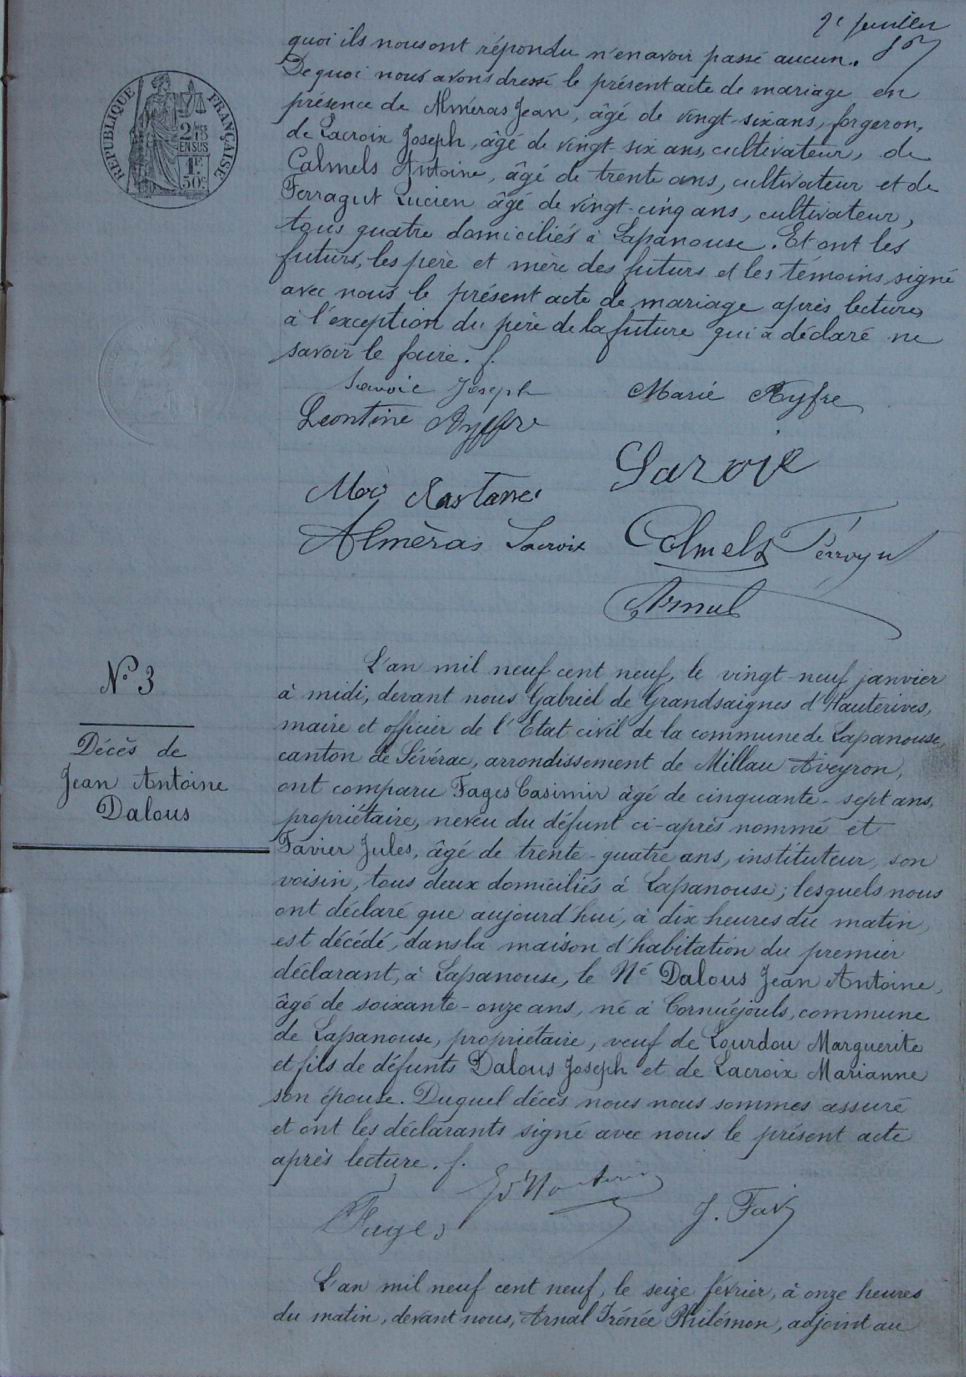 2e feuillet
quoi ils nous ont répondu n'en avoir passé aucun.
De quoi nous avons dressé le présent acte de mariage en
présence de Alméras Jean, âgé de vingt-six ans, forgeron,
de Lacroix Joseph, âgé de vingt six ans, cultivateur, de
Calmels Antoine, âgé de trente ans, cultivateur et de
Ferragut Lucien âgé de vingt-cinq ans, cultivateur,
tous quatre domiciliés à Lapanouse. Et ont les
futurs, les père et mère des futurs et les témoins signé
avec nous le présent acte de mariage après lecture
à l'exception du père de la future qui a déclaré ne
savoir le faire.
RÉPUBLIQUE FRANÇAISE
2/10 EN SUS
1F 50c
Joseph
Marié Ayfre
Léontine Ayffre
Alméras Lacroix Calmels
Arnal
N° 3
Décès de
Jean Antoine
Dalous
L'an mil neuf cent neuf, le vingt-neuf janvier
à midi, devant nous Gabriel de Grandsaignes d'Hauterives,
maire et officier de l'État civil de la commune de Lapanouse,
canton de Sévérac, arrondissement de Millau Aveyron,
ont comparu Fages Casimir âgé de cinquante-sept ans,
propriétaire, neveu du défunt ci-après nommé et
Favier Jules, âgé de trente-quatre ans, instituteur, son
voisin, tous deux domiciliés à Lapanouse; lesquels nous
ont déclaré que aujourd'hui, à dix heures du matin,
est décédé, dans la maison d'habitation du premier
déclarant, à Lapanouse, le Né Dalous Jean Antoine,
âgé de soixante-onze ans, né à Cornuéjouls, commune
de Lapanouse, propriétaire, veuf de Lourdou Marguerite
et fils de défunts Dalous Joseph et de Lacroix Marianne
son épouse. Duquel décès nous nous sommes assuré
et ont les déclarants signé avec nous le présent acte
après lecture.
Fages
J. Fav
L'an mil neuf cent neuf, le seize février, à onze heures
du matin, devant nous, Arnal Irénée Philémon, adjoint au